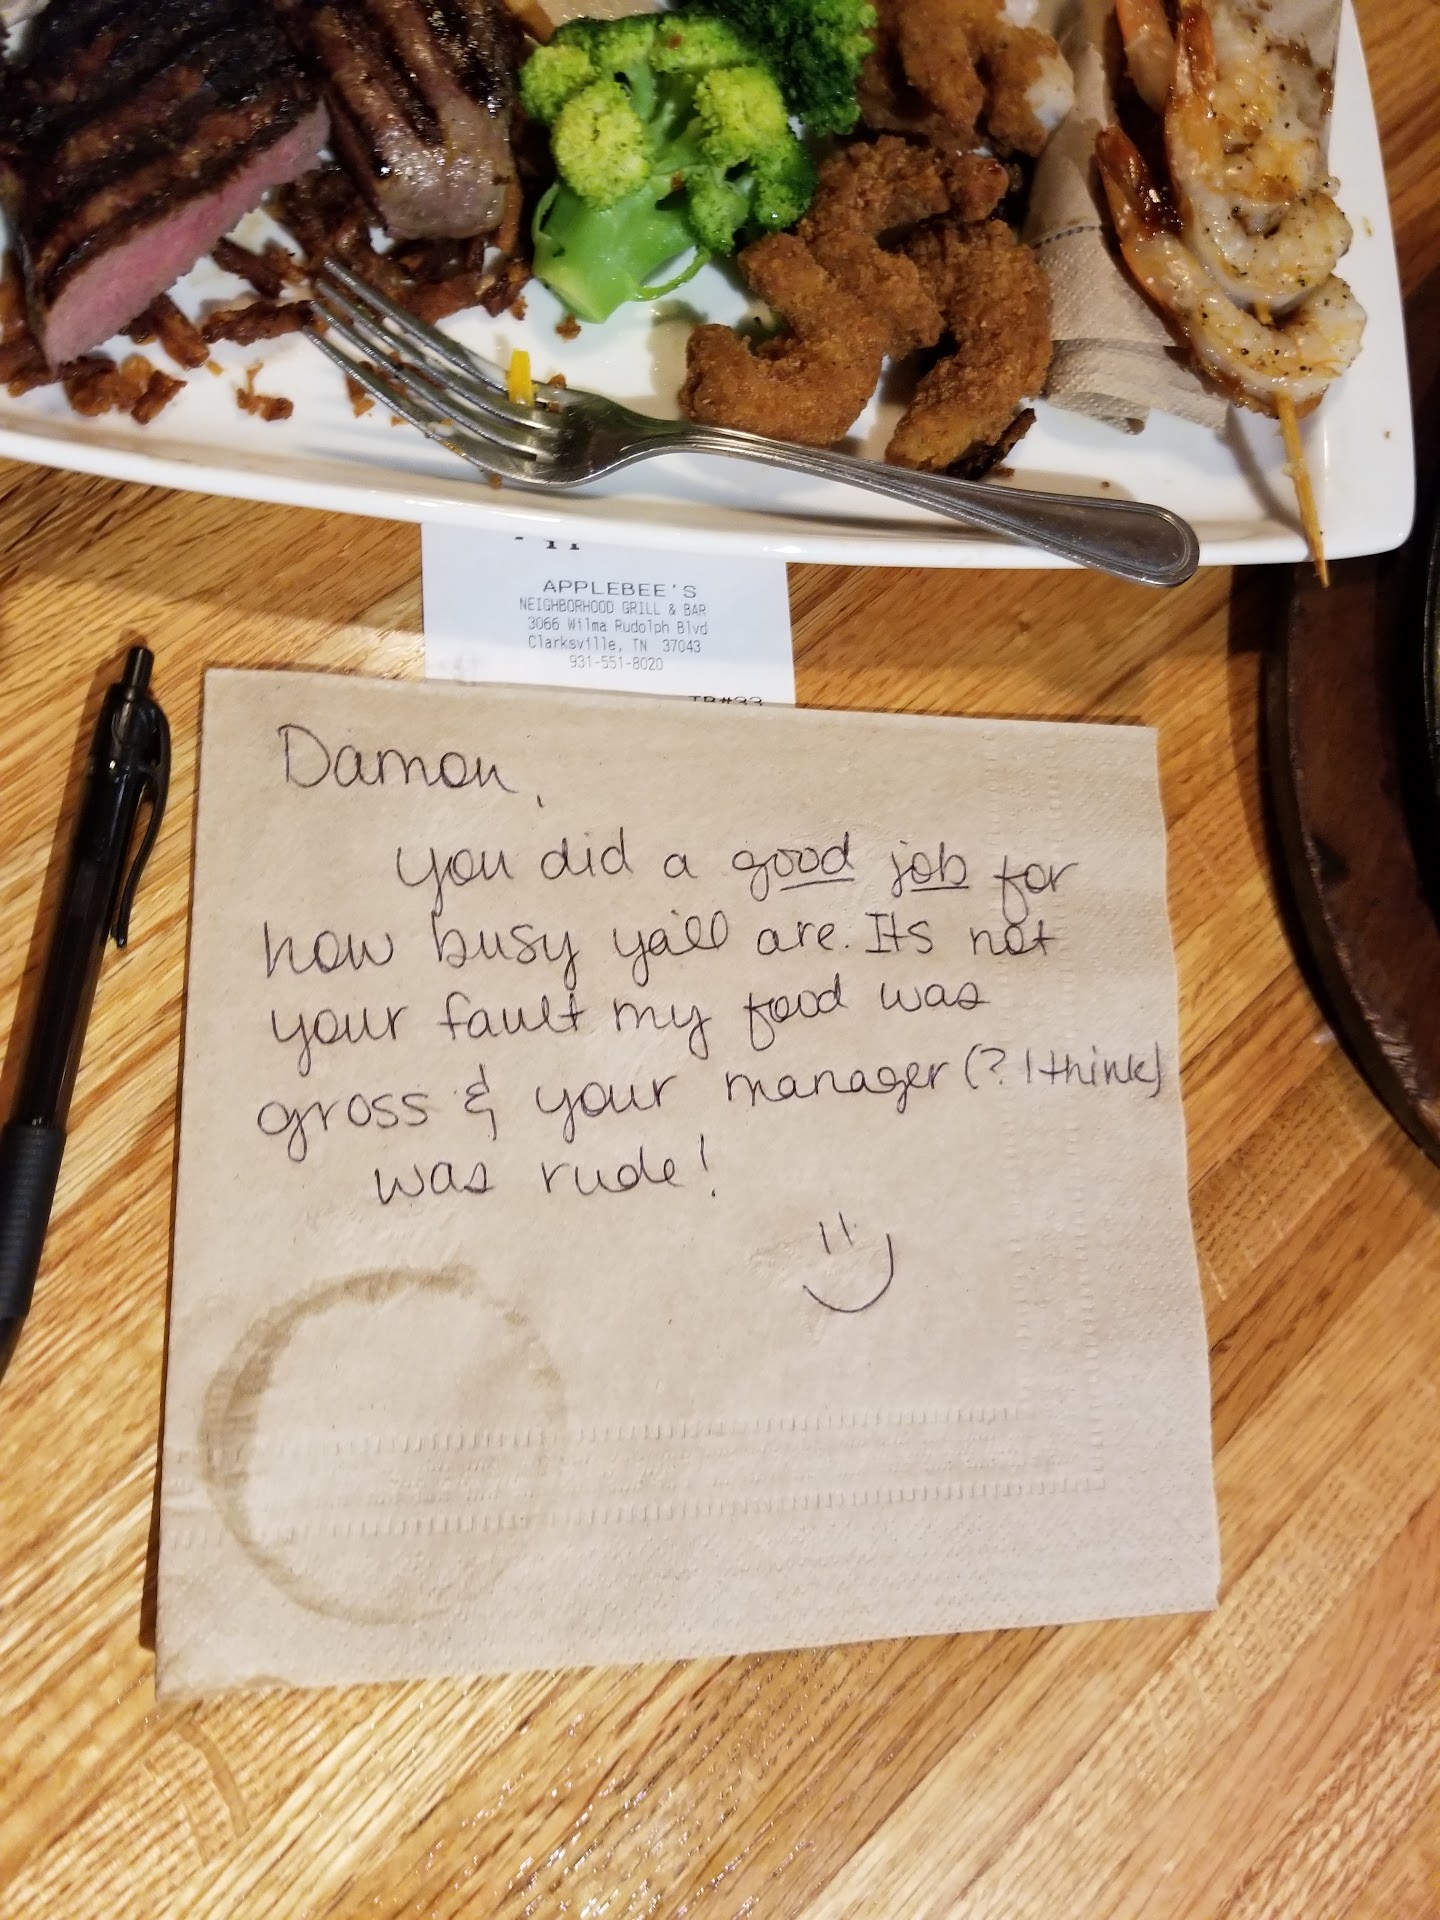 APPLEBEE'S
NEIGHBORHOOD GRILL & BAR
3066 Wilma Rudolph Blvd
Clarksville, TN 37043
931-551-8020
Damon,
you did a good job for
how busy ya'll are. Its not
your fault my food was
gross & your manager (? I think)
was rude!